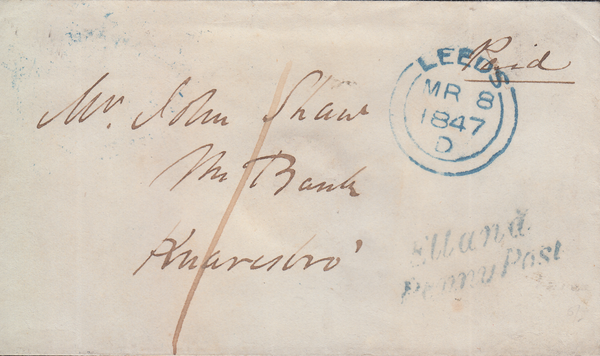 Paid
LEEDS
MR 8
1847
D
Mr. John Shaw
Bank
Knaresbro'
1
Elland
Penny Post